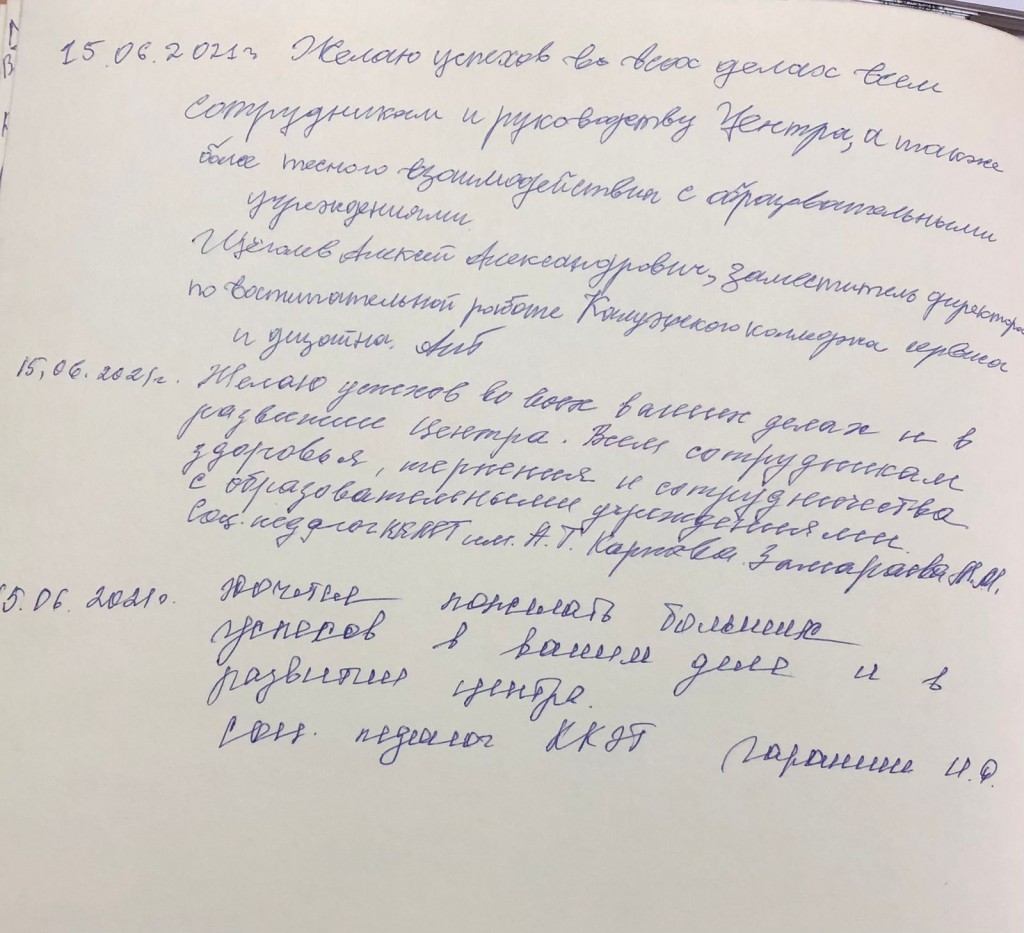 15.06.2021г Желаю успехов во всех делах всем
сотрудникам и руководству Центра, а также
более тесного взаимодействия с образовательными
учреждениями.
Щёголев Алексей Александрович, заместитель директора
по воспитательной работе Калужского колледжа сервиса
и дизайна.
15.06.2021г. Желаю успехов во всех ваших делах и в
развитии Центра. Всем сотрудникам
здоровья, терпения и сотрудничества
с образовательными учреждениями.
Соц. педагог им. А.Т. Карпова Замараева М.М.
15.06.2021г. Хочется пожелать больших
успехов в вашем деле и в
развитии центра.
Соц. педагог ККЭТ Гаранина И.О.